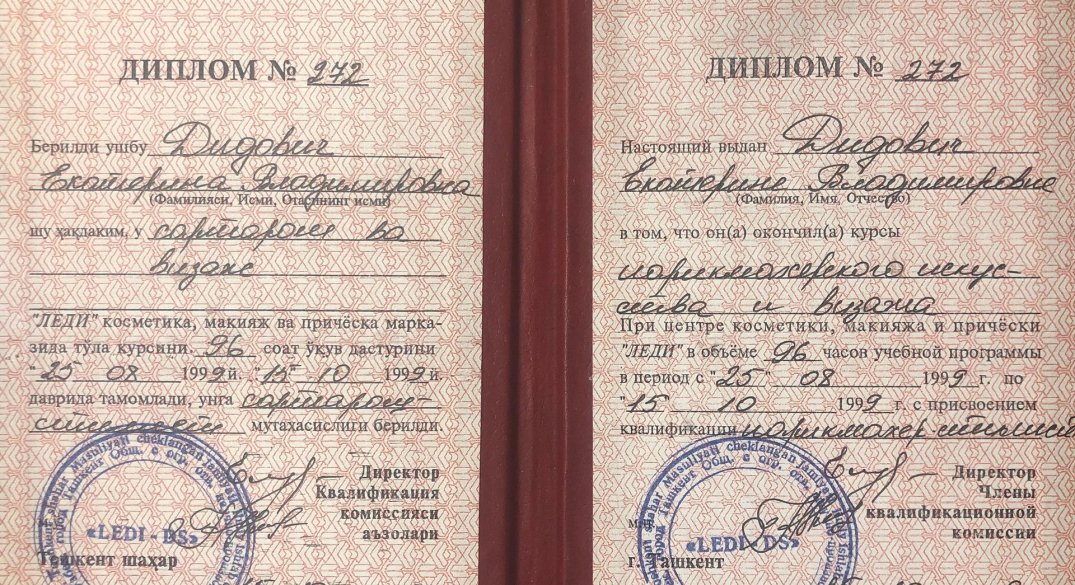 ДИПЛОМ № 272
Берилди ушбу Дидович
Екатерина Владимировна
(Фамилияси, Исми, Отасининг исми)
шу ҳақдаким, у сартарош ва
визаж
"ЛЕДИ" косметика, макияж ва причёска марка-
зида тўла курсини 96 соат ўқув дастурини
"25" 08 1999й. "15" 10 1999й.
даврида тамомлади, унга сартарош-
мутахасислиги берилди.
Директор
Квалификация
комиссияси
аъзолари
«LEDI - DS»
Тошкент шаҳар
ДИПЛОМ № 272
Настоящий выдан Дидович
Екатерине Владимировне
(Фамилия, Имя, Отчество)
в том, что он(а) окончил(а) курсы
парикмахерского искус-
ства и визажа
При центре косметики, макияжа и причёски
"ЛЕДИ" в объёме 96 часов учебной программы
в период с "25" 08 1999г. по
"15 10 1999г. с присвоением
квалификации парикмахер стилист
Директор
Члены
квалификационной
комиссии
«LEDI - DS»
г. Ташкент